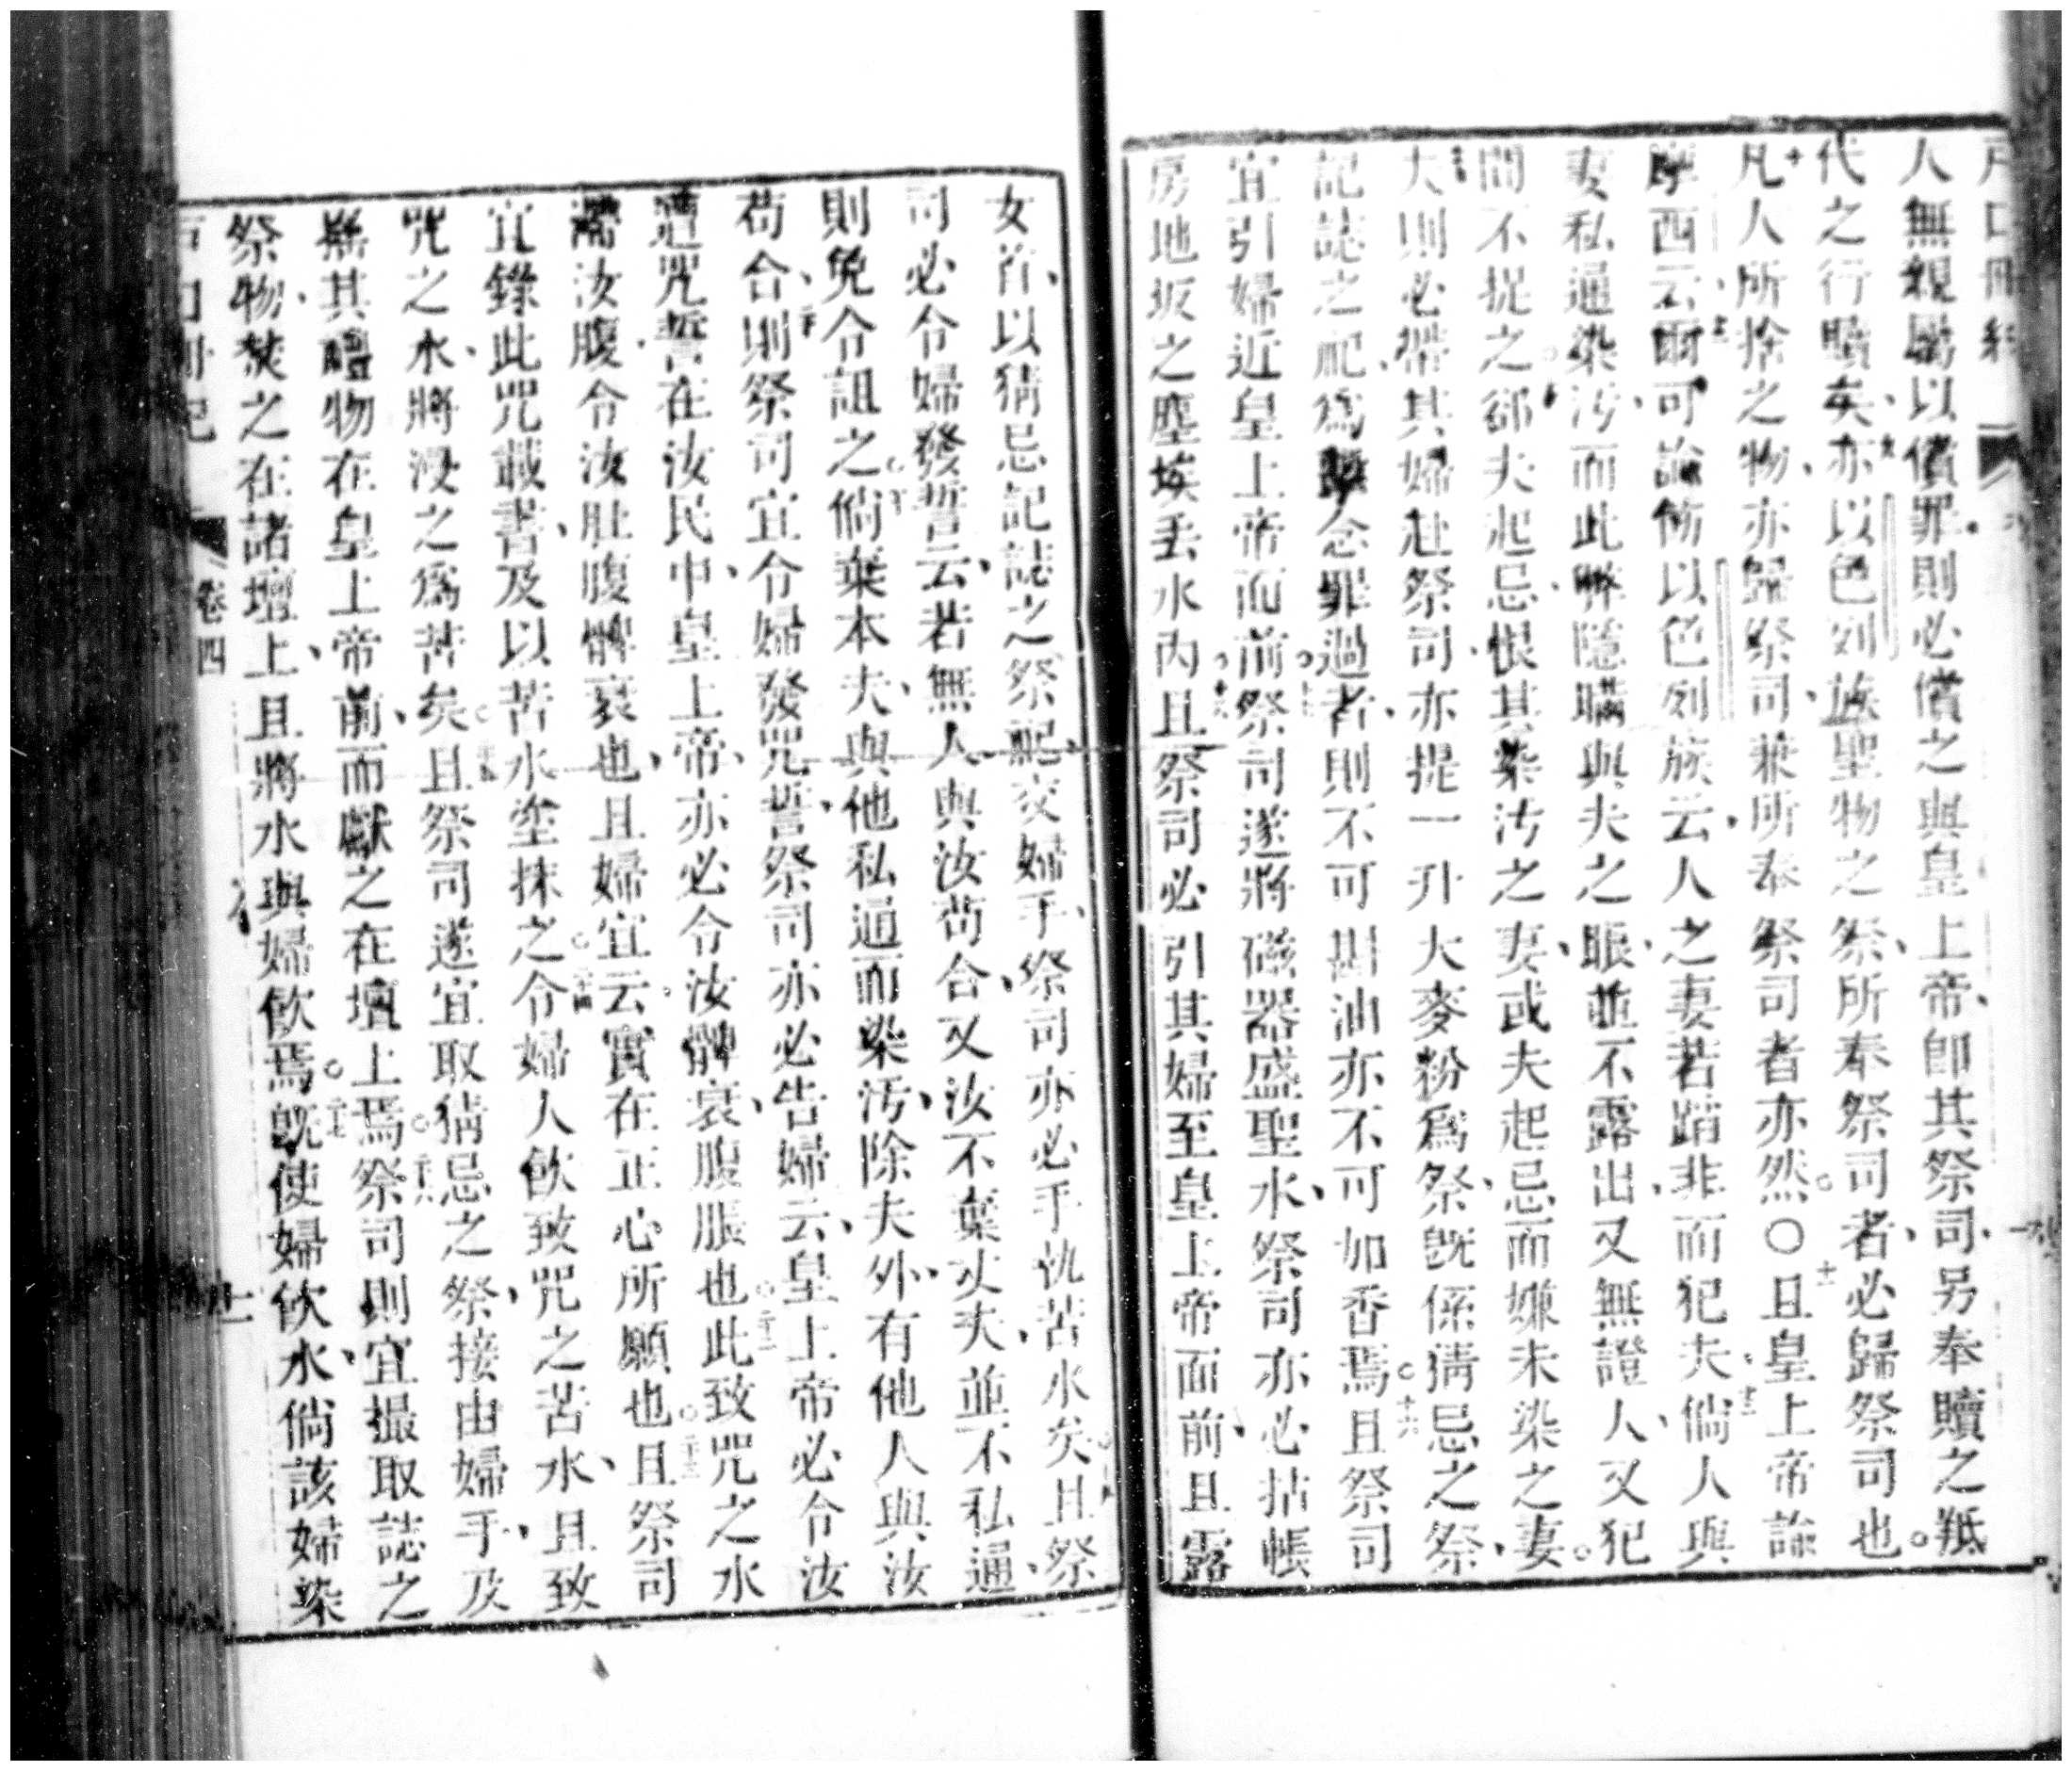 人無親屬以償罪則必償之與皇上帝、卽其祭司、另奉贖之羝
代之行贖矣、亦以色列族聖物之祭、所奉祭司者、必歸祭司也。
十凡人所捨之物、亦歸祭司、兼所奉祭司者亦然。〇十一且皇上帝諭
摩西云、十二爾可諭飭以色列族云、人之妻若蹈非而犯夫、十三倘人與
妻私通染污、而此弊隱瞞與夫之眼、並不露出、又無證人、又犯
間不捉之、卻夫起忌、恨其染污之妻、或夫起忌而嫌未染之妻。
夫則必帶其婦赴祭司、亦提一升大麥粉爲祭、旣係猜忌之祭、
記誌之祀、爲懸念罪過者、則不可斟油、亦不可加香焉。十六且祭司
宜引婦近皇上帝面前。十七祭司遂將磁器盛聖水、祭司亦必拈帳
房地坂之塵埃丟水內。十八且祭司必引其婦至皇上帝面前、且露
女首、以猜忌記誌之祭祀交婦手、祭司亦必手執苦水矣。且祭
司必令婦發誓云、若無人與汝苟合、又汝不棄丈夫、並不私通、
則免令詛之。二十倘棄本夫、與他私通而染污、除夫外、有他人與汝
苟合、則祭司宜令婦發咒誓、祭司亦必告婦云、皇上帝必令汝
遭咒誓在汝民中、皇上帝、亦必令汝髀衰、腹脹也。二十二此致咒之水
霑汝腹、令汝肚腹髀衰也、且婦宜云、實在正心所願也。二十三且祭司
宜錄此咒載書、及以苦水塗抹之。二十四令婦人飲致咒之苦水、且致
咒之水、將浸之爲苦矣。二十五且祭司遂宜取猜忌之祭、接由婦手、及
搖其禮物在皇上帝前、而獻之在壇上焉。二十六祭司則宜撮取誌之
祭物、焚之在諸壇上、且將水與婦飲焉。二十七旣使婦飲水、倘該婦染
戶口冊紀
卷四